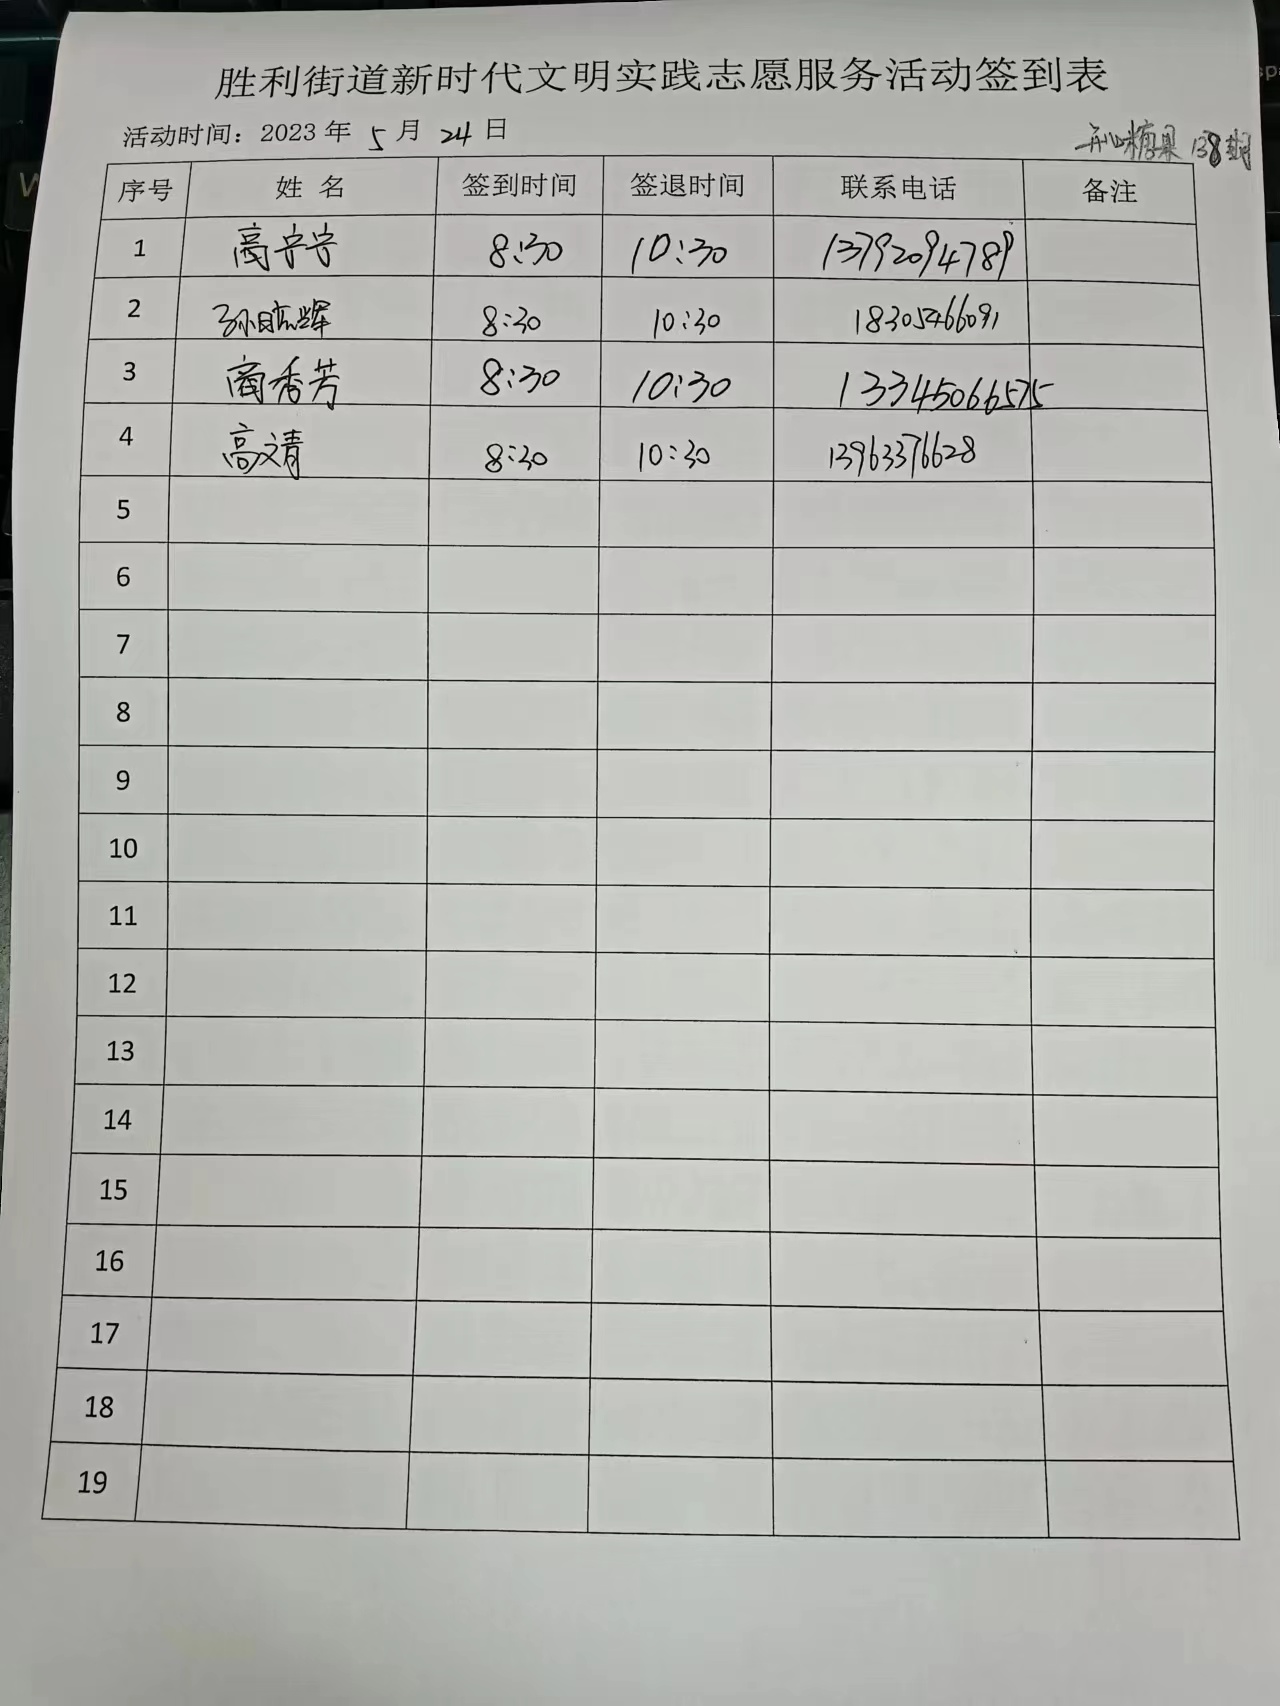 胜利街道新时代文明实践志愿服务活动签到表
活动时间：2023 年 5 月 24 日
开心糖果 138期
序号 姓 名 签到时间 签退时间 联系电话 备注
1 高守守 8:30 10:30 13792094789
2 8:30 10:30 18305466091
3 商秀芳 8:30 10:30 13345066575
4 高文清 8:30 10:30 13963376628
5
6
7
8
9
10
11
12
13
14
15
16
17
18
19